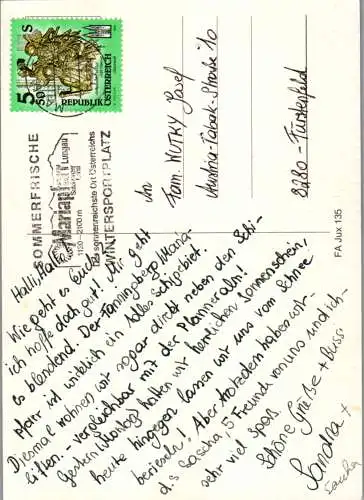 5 S
50
REPUBLIK ÖSTERREICH
SOMMERFRISCHE
Mariapfarr
Lungau
Salzburger
Land
1120-2100 m
Der sonnenreichste Ort Österreichs
WINTERSPORTPLATZ
Halli, Hallo!
Wie geht es Euch?
ich hoffe doch gut! Mir geht
es blendend. Der Fanningsberg Maria-
pfarr ist wirklich ein tolles Schigebiet.
Diesmal wohnen wir sogar direkt neben den Schi-
liften.- Vergleichbar mit der Planneralm!
Gestern (Montag) hatten wir herrlichen Sonnenschein,
heute hingegen lassen wir uns vom Schnee
berieseln! Aber trotzdem haben wir-
d.s Sascha, 5 Freunde von uns und ich-
sehr viel Spaß.
Schöne Grüße + Bussi
Sandra +
Sascha
An
Fam. WUTKY Josef
Austria-Tabak-Straße 10
8280-Fürstenfeld
FA Jux 135